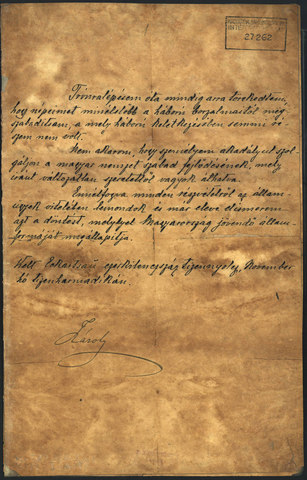 27262
Trónralépésem óta mindig arra törekedtem,
hogy népeimet minélelőbb a háború borzalmaitól meg-
szabadítsam, a mely háború keletkezésében semmi ré-
szem nem volt.
Nem akarom, hogy személyem akadályul szol-
gáljon a magyar nemzet szabad fejlődésének, mely
iránt változatlan szeretettől vagyok áthatva.
Ennélfogva minden részvételről az állam-
ügyek vitelében lemondok és már eleve elismerem
azt a döntést, mely Magyarország jövendő állam-
formáját megállapítja.
Kelt Eckartsau ezerkilencszáz tizennyolcz, November
hó tizenharmadikán.
Károly